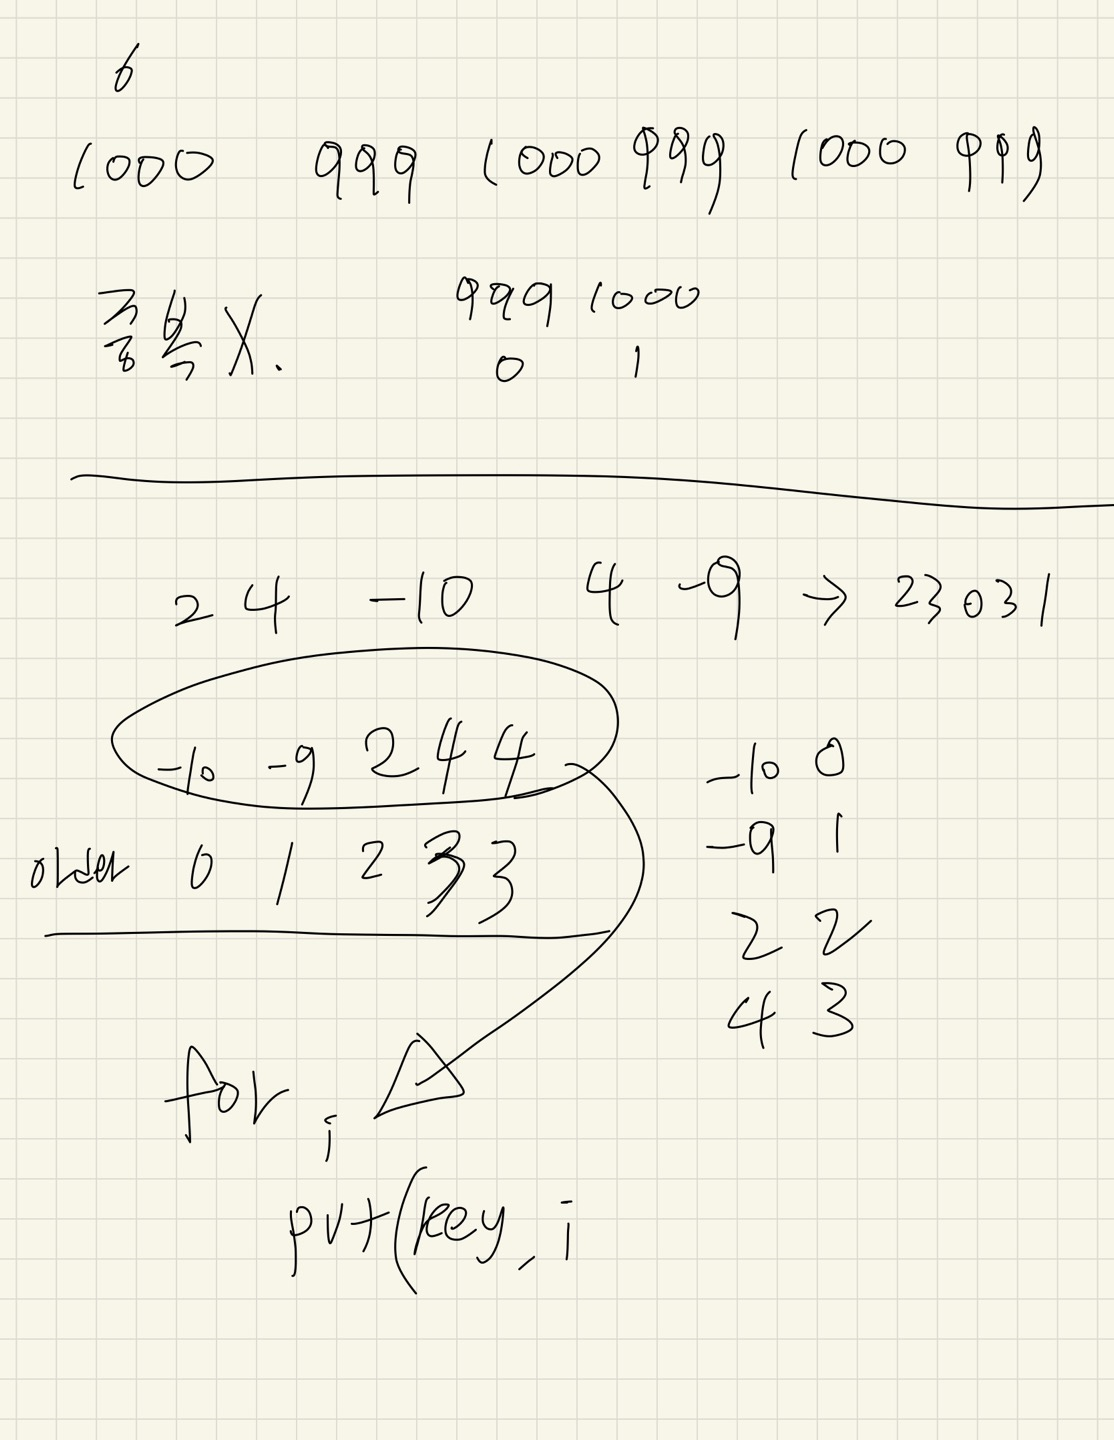 6
1000 999 1000 999 1000 999
중복 X.
999 1000
0 1
2 4 -10 4 -9 → 2 3 0 3 1
-10 -9 2 4 4
order 0 1 2 3 3
-10 0
-9 1
2 2
4 3
for i
put(key, i